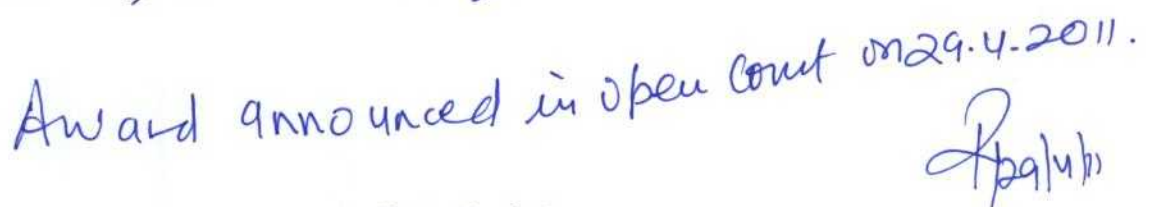 Award announced in open Court on 29.4.2011.
29/4/11